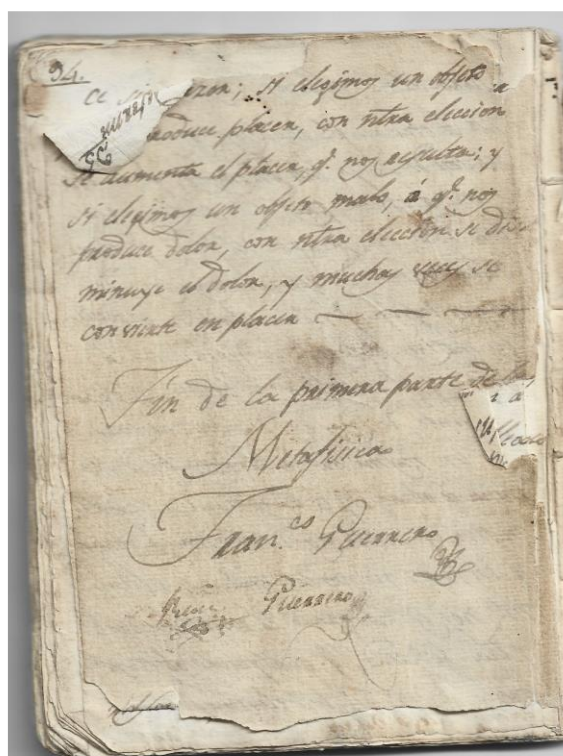 94.
si elegimos un objeto
produce placer, con ntra eleccion
se aumenta el placer, q.e nos resulta; y
si elegimos un objeto malo, á q.e nos
produce dolor, con ntra eleccion se dis
minuye el dolor, y muchas veces se
convierte en placer
Fin de la primera parte de la
Metafisica
Fran.co Guerrero
Guerrero